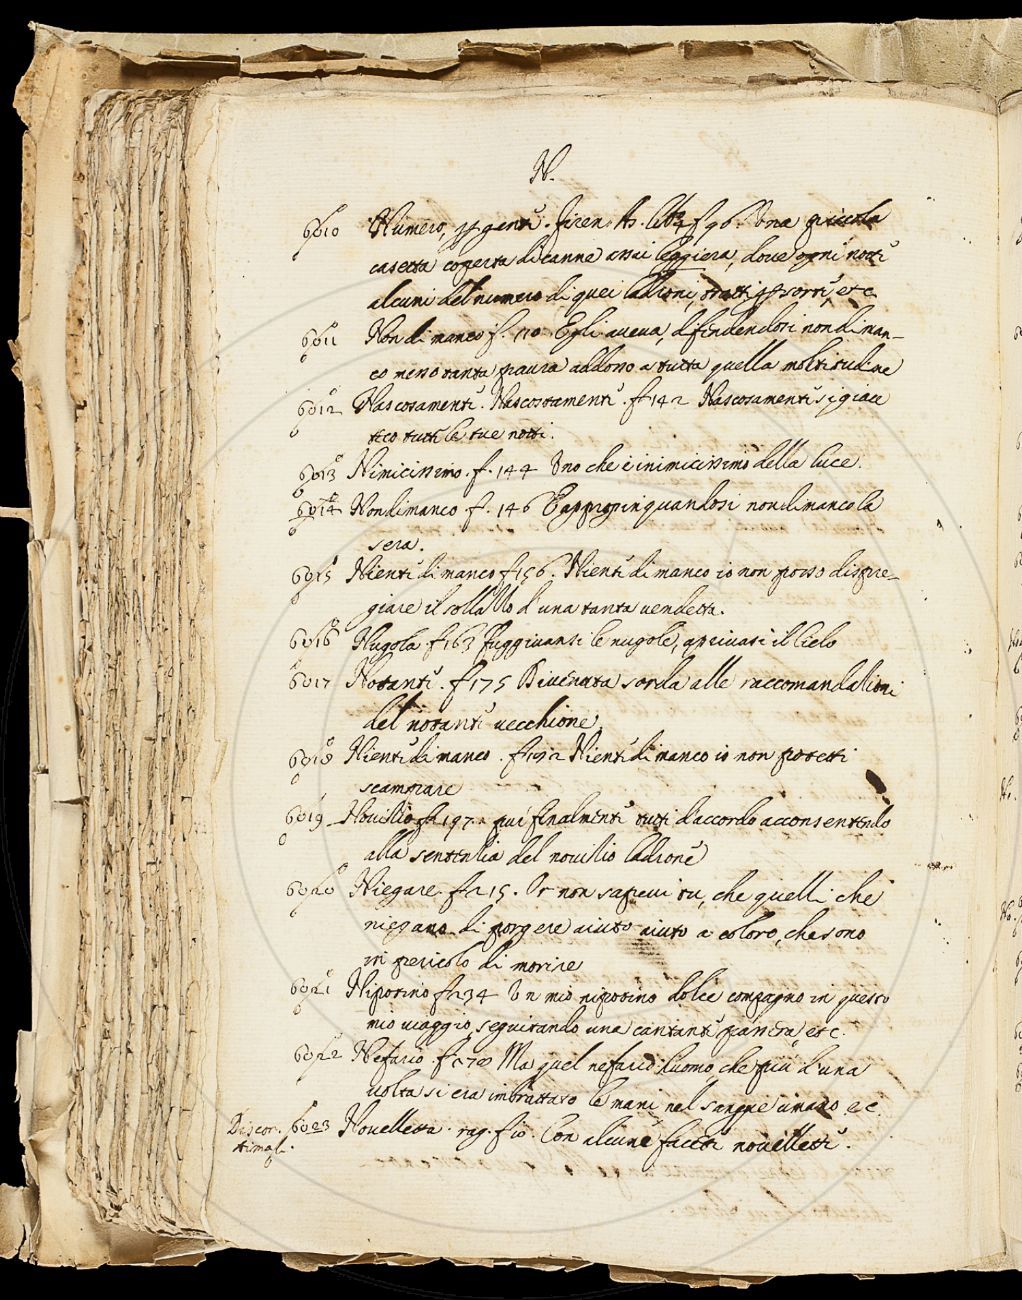 N.
6010 Numero, p gente. Firen. As. lib. 4 f 96. Una piccola
casetta coperta di canne assai leggiera, dove ogni notte
alcuni del numero di quei ladroni, tratti p sorte, etc.
6011 Non di manco f. 110 Egli aveva, difendendosi non di man-
co messo tanta paura addosso a tutta quella moltitudine
6012 Nascosamente. Nascostamente. f 142 Nascosamente si giace
teco tutte le tue notti.
6013 Nimicissimo. f. 144 Uno che è inimicissimo della luce.
6014 Nondimanco f. 146 E appropinquandosi nondimanco la
sera.
6015 Niente di manco f 156. Niente di manco io non posso dispre-
giare il sollazzo d'una tanta vendetta.
6016 Nugola f 163 fuggivansi le nugole, aprivasi il Cielo
6017 Notante. f 175 Divenuta sorda alle raccomandazioni
del notante vecchione
6018 Niente di manco. f 192 Niente di manco io non potetti
scampare
6019 Novizio f 197. fui finalmente tutti d'accordo acconsentendo
alla sentenzia del novizio ladrone
6020 Niegare. f 215. Or non sapevi tu, che quelli che
niegano di porgere aiuto aiuto a coloro, che sono
in pericolo di morire
6021 Nipotino f 234 Un mio nipotino dolce compagno in questo
mio viaggio, seguitando una cantante passera etc.
6022 Nefario. f 270 Ma quel nefario huomo che più d'una
volta si era imbrattato le mani nel sangue umano ec.
Discor. Animal. 6023 Novelletta. rag. fio. Con alcune faccete novellette.